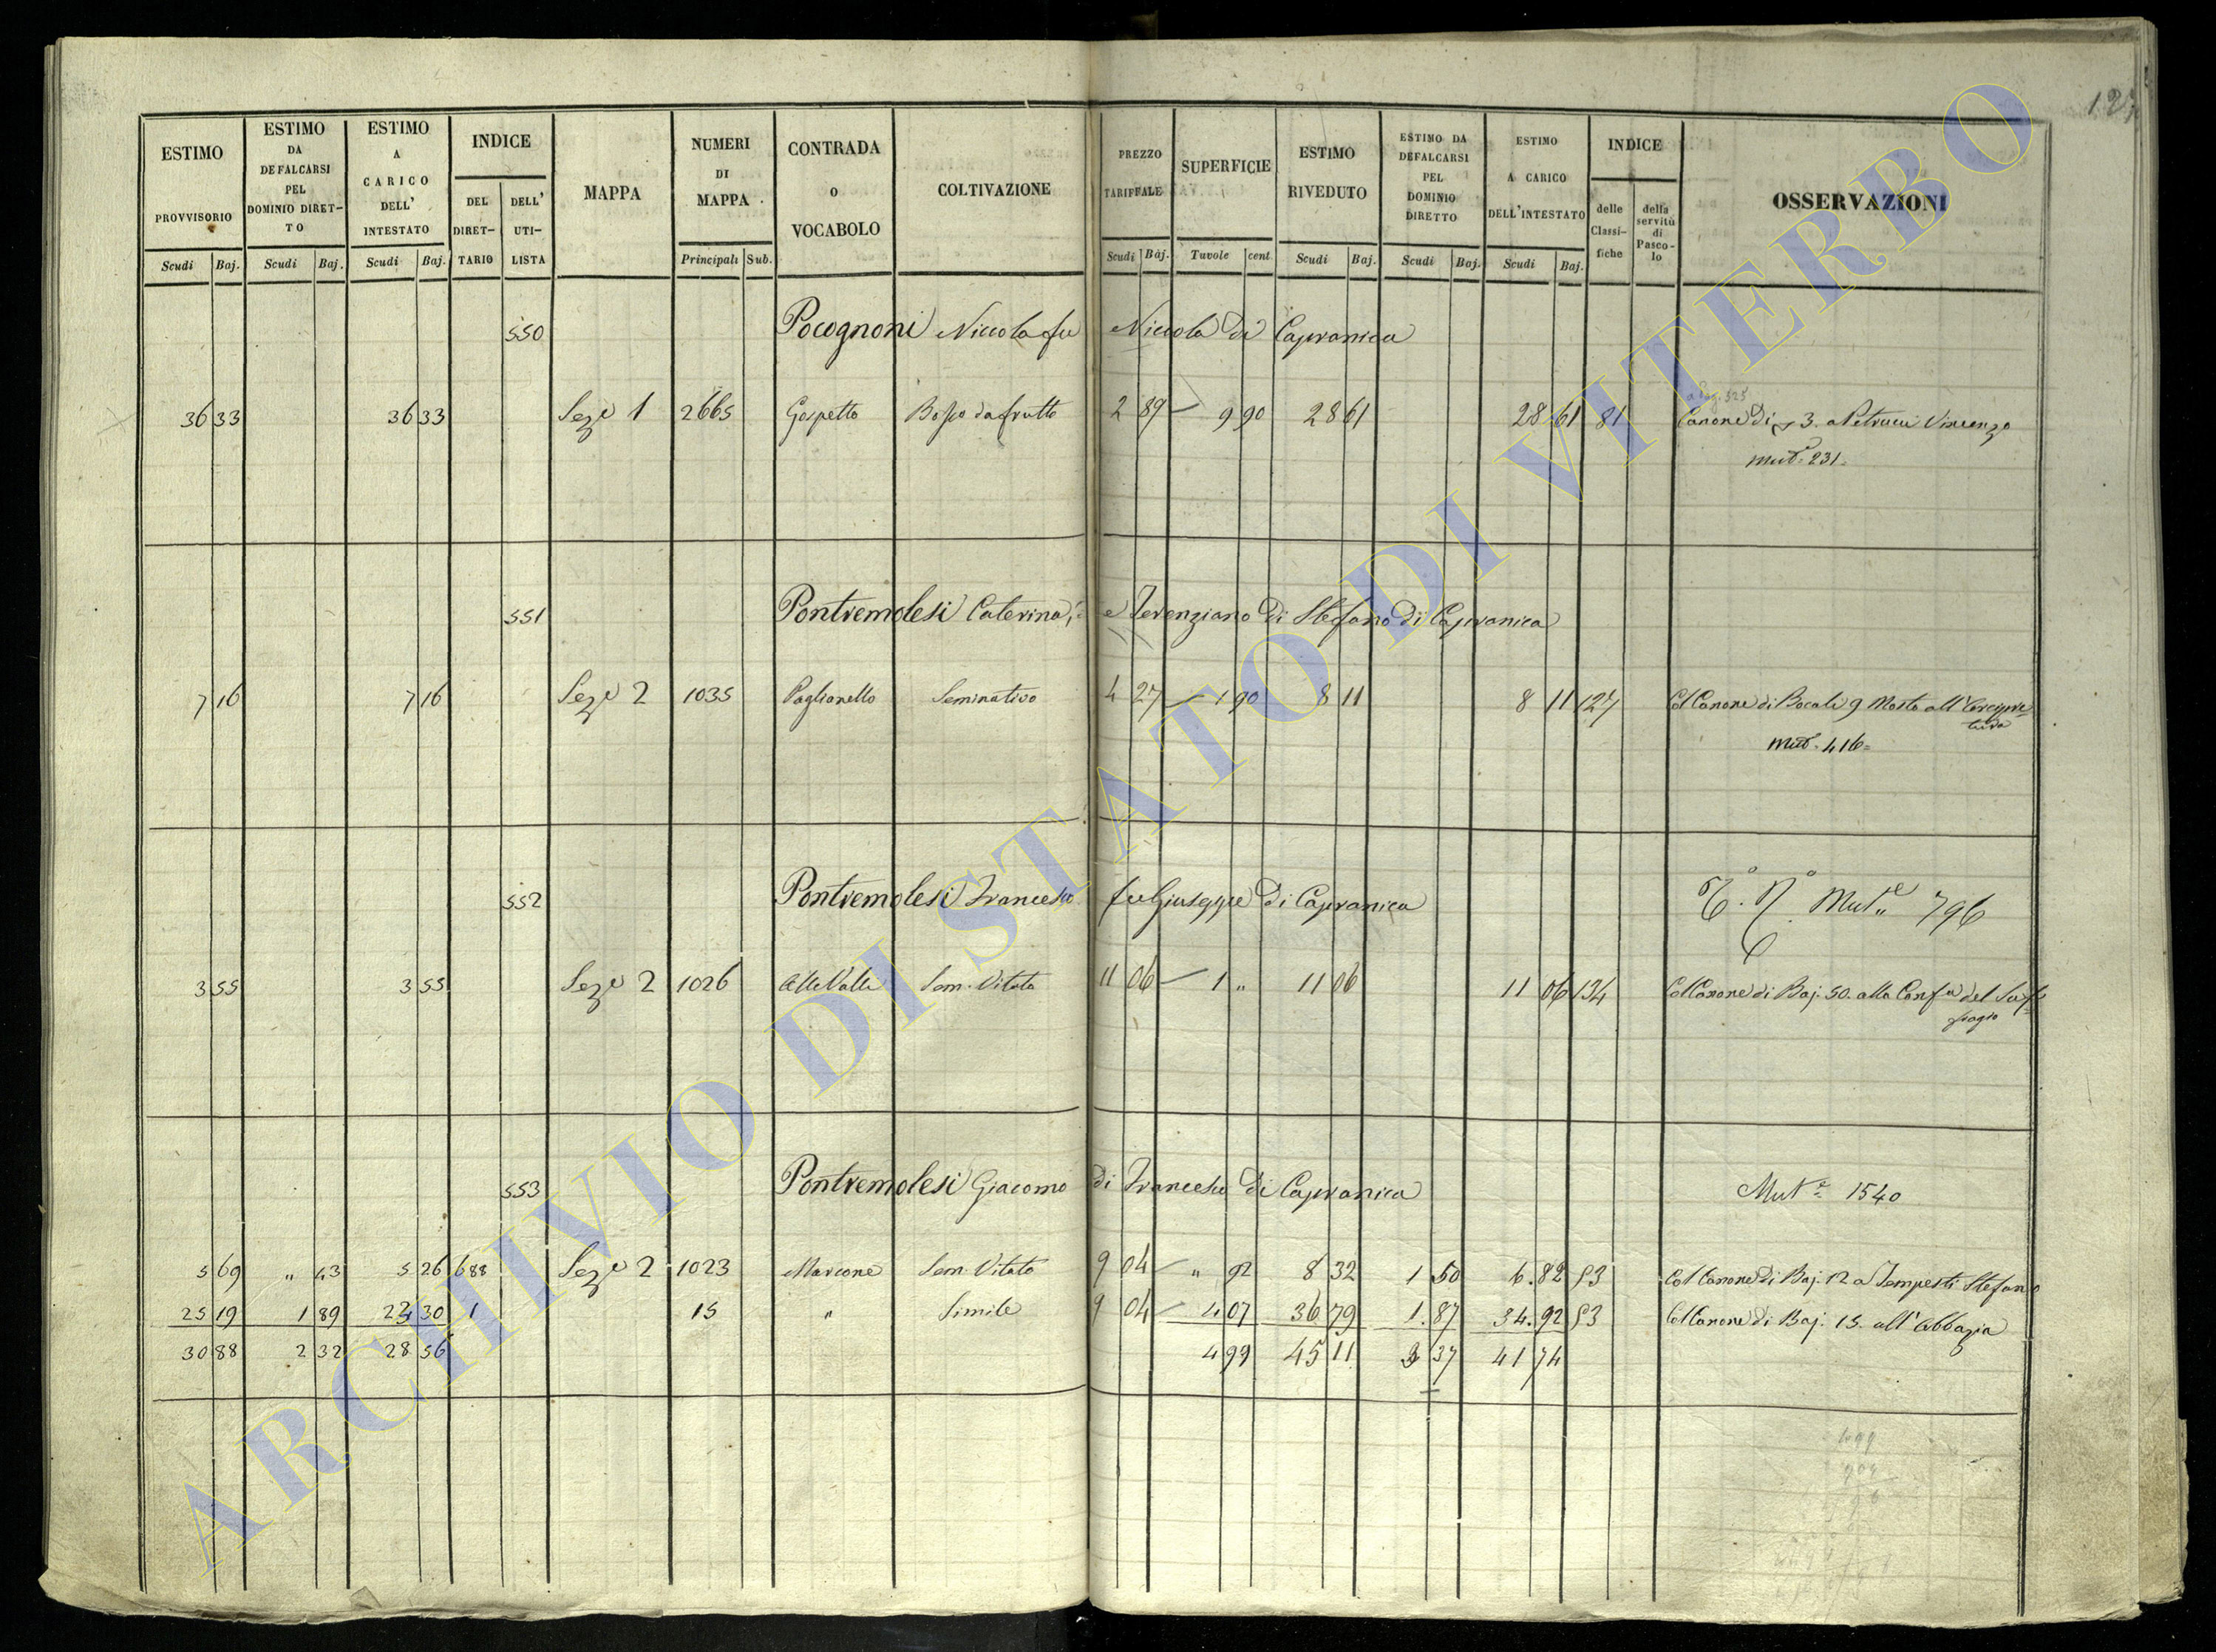 127
ESTIMO PROVVISORIO Scudi Baj.
ESTIMO DA DEFALCARSI PEL DOMINIO DIRET-TO Scudi Baj.
ESTIMO A CARICO DELL' INTESTATO Scudi Baj.
INDICE DEL DIRET-TARIO DELL' UTI-LISTA
MAPPA
NUMERI DI MAPPA Principali Sub.
CONTRADA O VOCABOLO
COLTIVAZIONE
PREZZO TARIFFALE Scudi Baj.
SUPERFICIE Tavole cent
ESTIMO RIVEDUTO Scudi Baj.
ESTIMO DA DEFALCARSI PEL DOMINIO DIRETTO Scudi Baj.
ESTIMO A CARICO DELL'INTESTATO Scudi Baj.
INDICE delle Classi-fiche della servitù di Pasco-lo
OSSERVAZIONI
550 Pocognoni Niccola fu Niccola di Capranica
a Pag. 325
36 33 36 33 Sez.e 1 2665 Gospetto Bosco da frutto 2 89 9 90 28 61 28 61 81 Canone di 3. a Petrucci Vincenzo
Mut.e 231
551 Pontremolesi Caterina, e Terenziano di Stefano di Capranica
7 16 7 16 Sez.e 2 1035 Paglianello Seminativo 4 27 1 90 8 11 8 11 127 Col Canone di Bocali 9 Mosto all'Arcipre-
tura
Mut.e 416
552 Pontremolesi Francesco fu Giuseppe di Capranica Mut.e 796
3 55 3 55 Sez.e 2 1026 Alle Valle Sem. Vitato 11 06 1 " 11 06 11 06 134 Col Canone di Baj. 50. alla Conf.a del Suf-
fragio
553 Pontremolesi Giacomo di Francesco di Capranica Mut.e 1540
5 69 " 43 5 26 688 Sez.e 2 1023 Marcone Sem. Vitato 9 04 " 92 8 32 1 50 6.82 53 Col Canone di Baj. 12 a Tempesti Stefano
25 19 1 89 23 30 1 15 " Simile 9 04 4 07 36 79 1.87 34.92 53 Col Canone di Baj. 15. all'Abbazia
30 88 2 32 28 56 4 99 45 11 3 37 41 74
499
904
ARCHIVIO DI STATO DI VITERBO